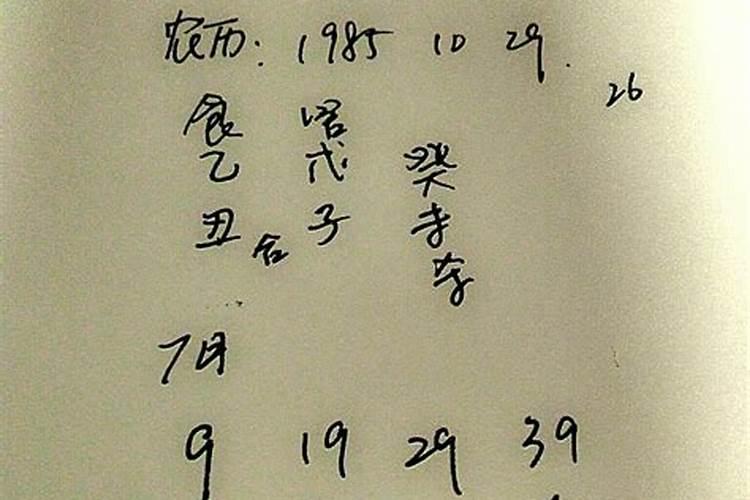 农历: 1985 10 29.
26
食
乙 戊 癸
丑 合 子
7月
9 19 29 39